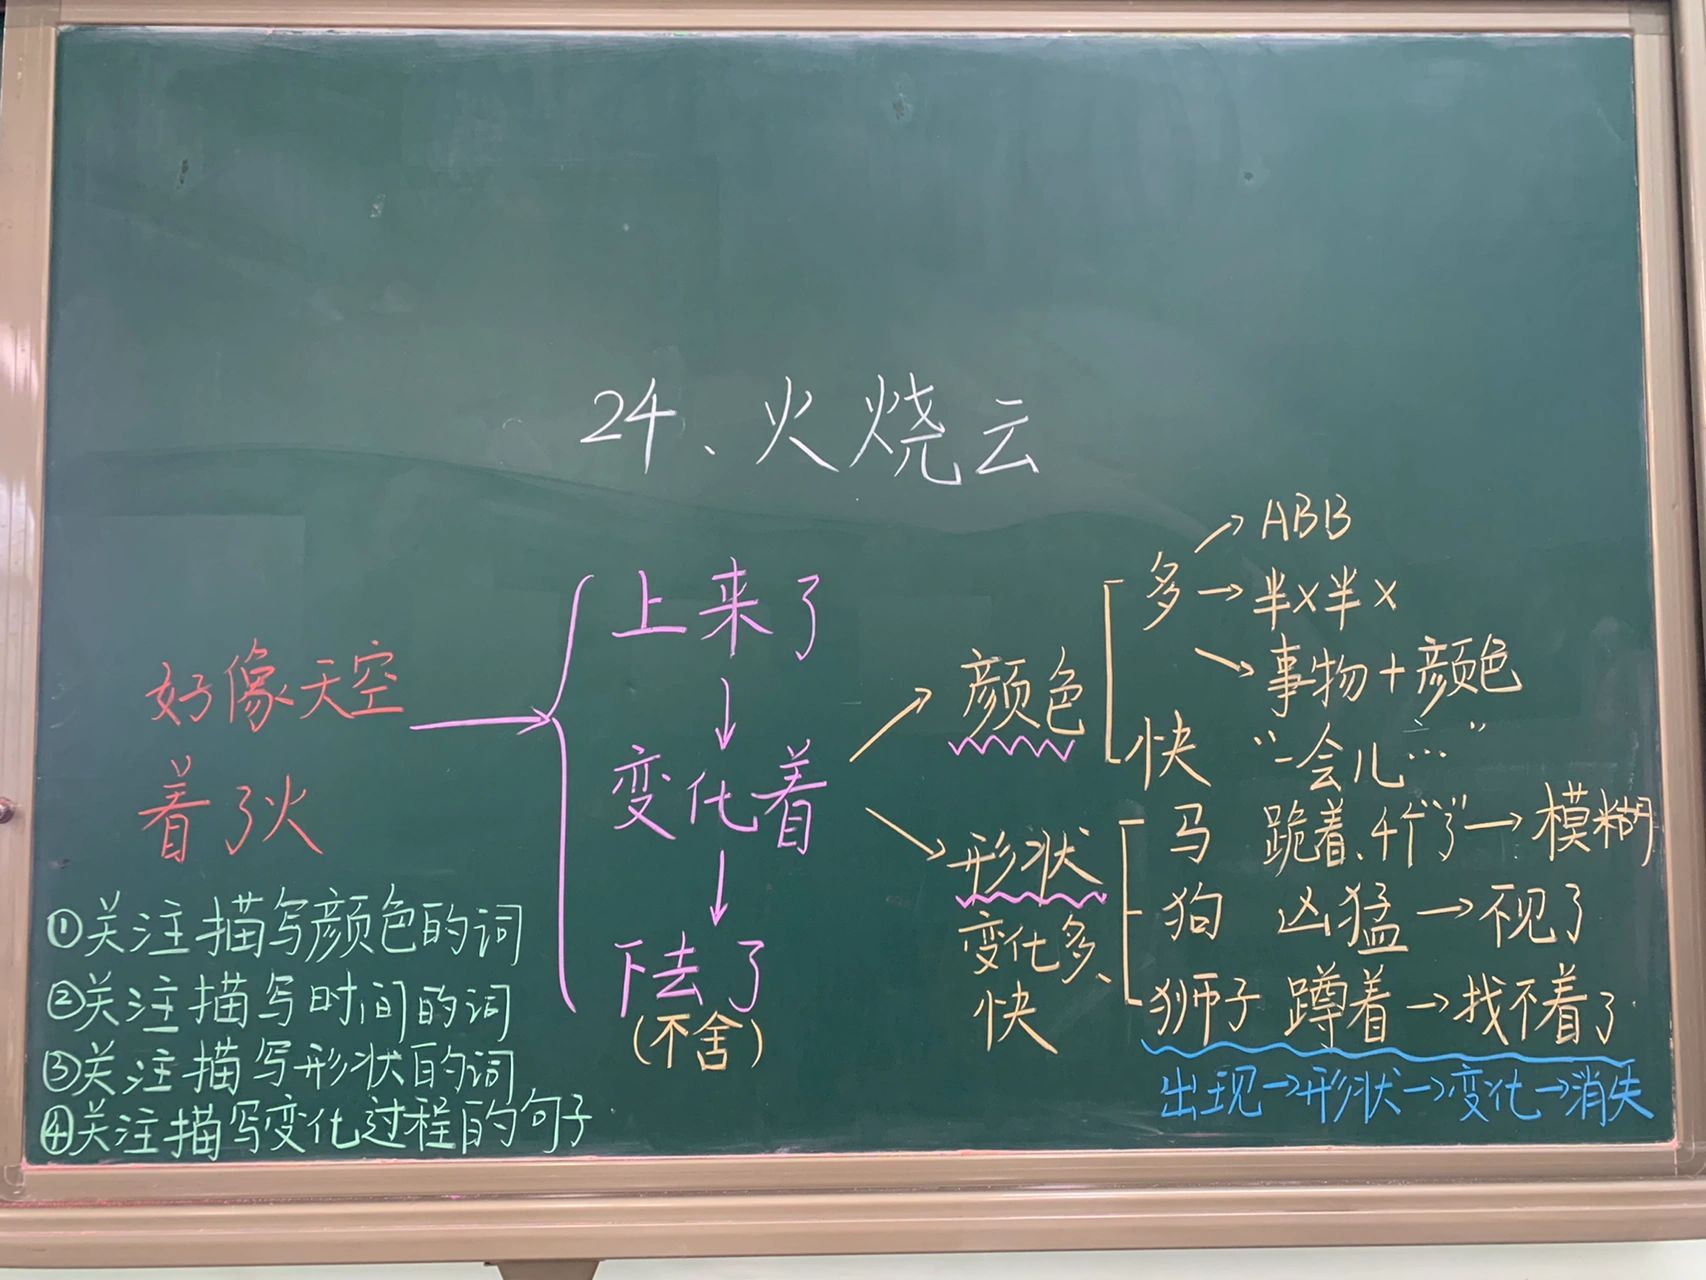 24、火烧云
好像天空
着了火
上来了
↓
变化着
↓
下去了
(不舍)
颜色
多→ABB
→半X半X
→事物+颜色
快 “一会儿…”
形状
变化多、
快
马 跪着、4个“了”→模糊
狗 凶猛→不见了
狮子 蹲着→找不着了
出现→形状→变化→消失
①关注描写颜色的词
②关注描写时间的词
③关注描写形状的词
④关注描写变化过程的句子